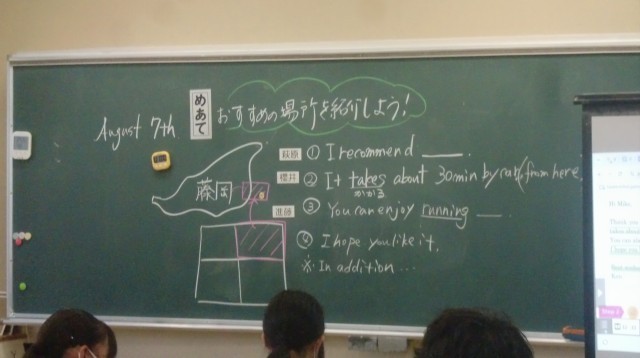 August 7th
めあて
おすすめの場所を紹介しよう!
藤岡
萩原 ① I recommend ____.
櫻井 ② It takes about 30min by car/from here.
かかる
③ You can enjoy running ____.
④ I hope you like it.
※ In addition ...